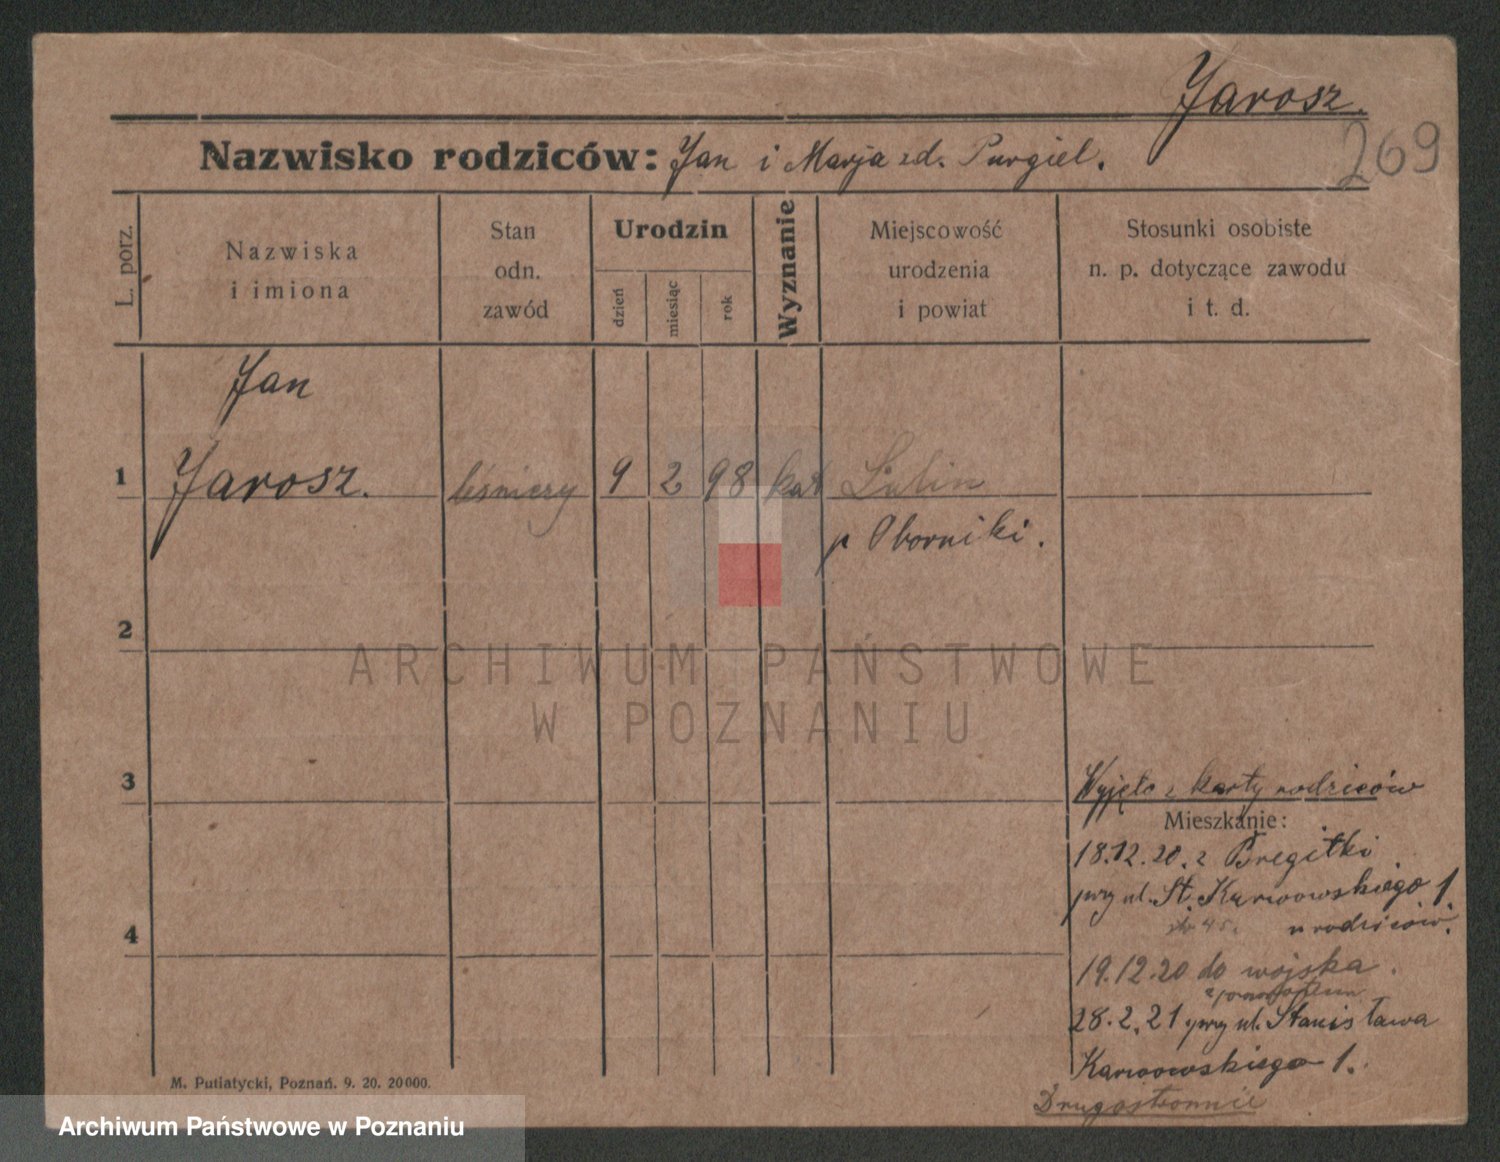 Jarosz.
269
Nazwisko rodziców: Jan i Marja zd. Purgiel.
L. porz.
Nazwiska
i imiona
Stan
odn.
zawód
Urodzin
dzień
miesiąc
rok
Wyznanie
Miejscowość
urodzenia
i powiat
Stosunki osobiste
n. p. dotyczące zawodu
i t. d.
Jan
1 Jarosz. leśniczy 9 2 98 kat Lulin
p Oborniki.
2
ARCHIWUM PAŃSTWOWE
W POZNANIU
3
Wyjęto z karty rodziców
Mieszkanie:
18.12.20. z
przy ul. St. Karwowskiego 1
u rodziców.
4
19.12.20 do wojska.
28.2.21 przy ul. Stanisława
Karwowskiego 1.
Drugostronnie
M. Putiatycki, Poznań. 9. 20. 20000.
Archiwum Państwowe w Poznaniu